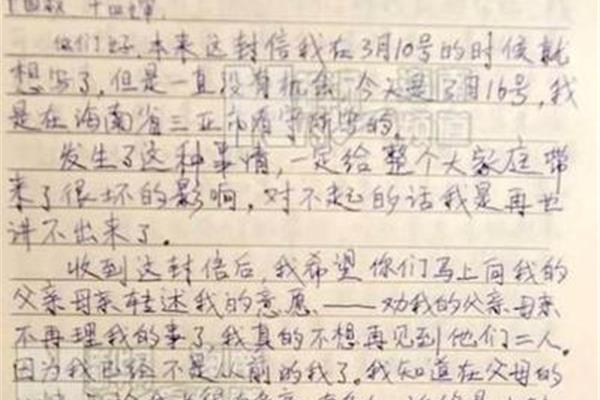 你们好，本来这封信我在3月10号的时候就
想写了，但是一直没有机会，今天是3月16号，我
是在海南省三亚市看守所写的。
发生了这种事情，一定给整个大家庭带
来了很坏的影响，对不起的话我是再也
讲不出来了。
收到这封信后，我希望你们马上向我的
父亲母亲转述我的意愿——劝我的父亲母亲
不再理我的事了，我真的不想再见到他们二人。
因为我已经不是从前的我了。我知道在父母的